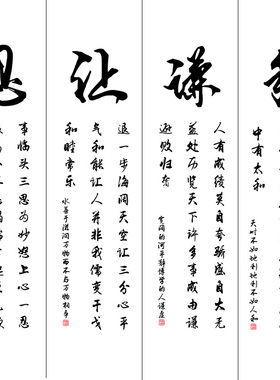 中有太和
天时不如地利地利不如人和
谦
人有成后莫自夸骄盛自大无
益处历览天下许多事成由谦
逊败归奢
宽阔的河平静博学的人谦虚
让
退一步海阔天空让三分心平
气和能让人并非我儒变干戈
和睦常乐
水善于滋润万物而不与万物相争
忍
事临头三思为妙怒上心一忍